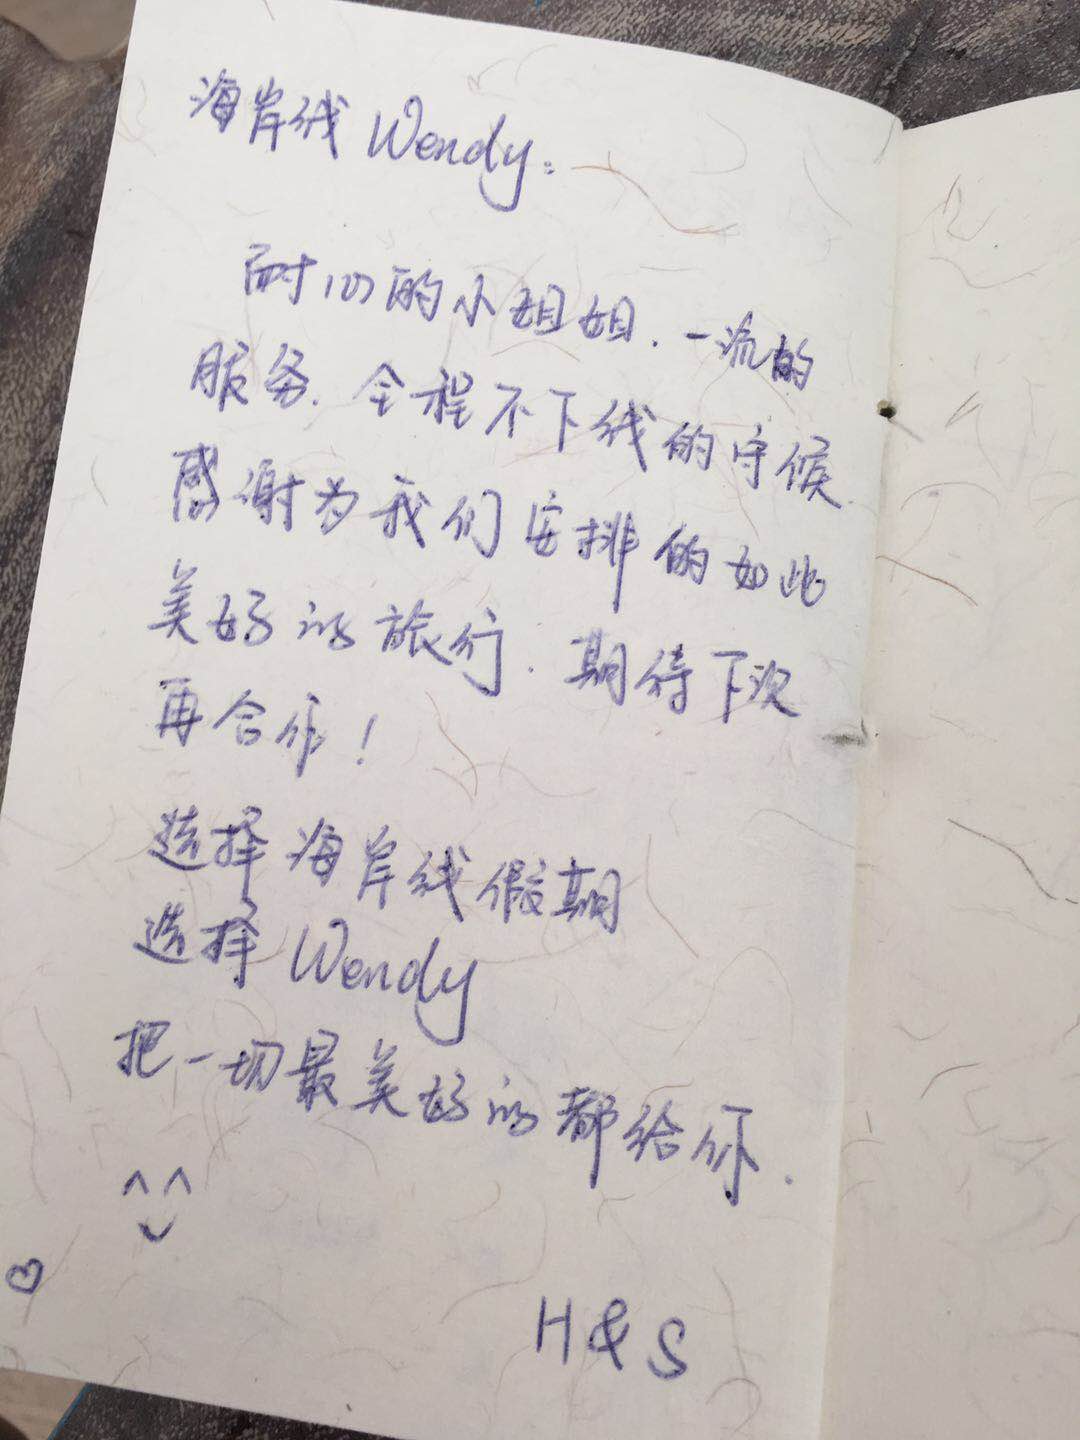 海岸线 Wendy:
耐心的小姐姐.一流的
服务.全程不下线的守候.
感谢为我们安排的如此
美好的旅行.期待下次
再合作!
选择海岸线假期
选择Wendy
把一切最美好的都给你.
^^
H & S